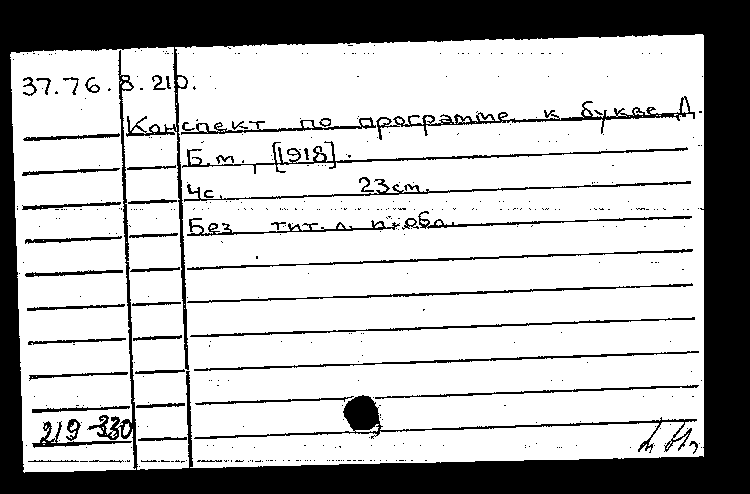 37.76.8.210.
Конспект по программе к букве Д.
Б.м., [1918].
4с. 23см.
Без тит. л. и обл.
219-330